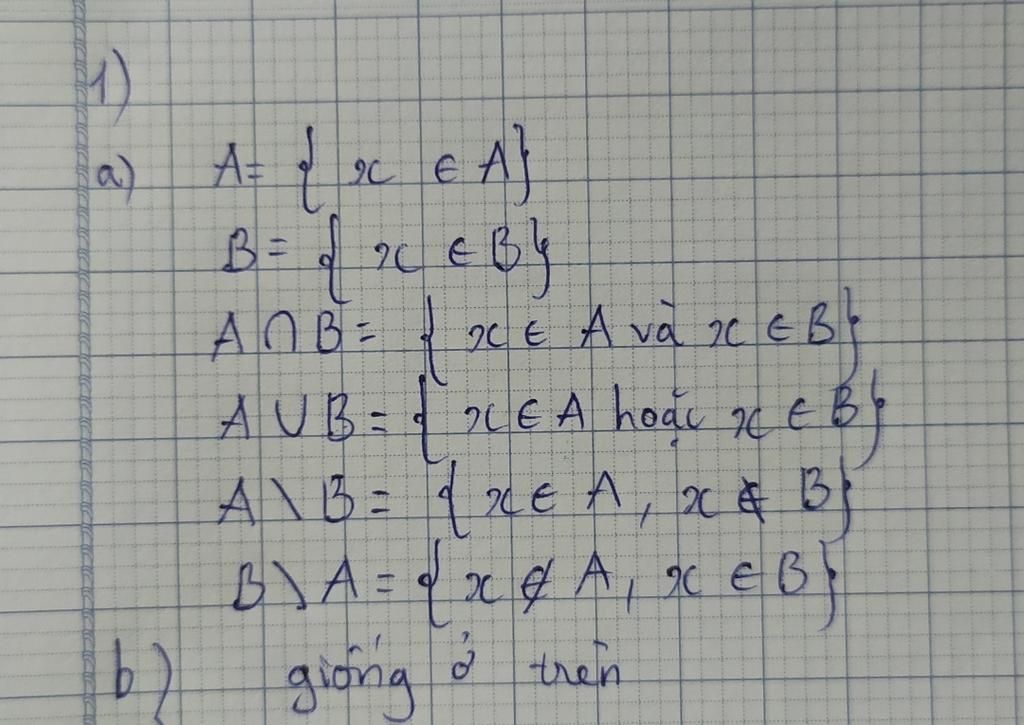 1)
a) A = { x ∈ A}
B = { x ∈ B}
A ∩ B = { x ∈ A và x ∈ B}
A ∪ B = { x ∈ A hoặc x ∈ B}
A \ B = { x ∈ A, x ∉ B}
B \ A = { x ∉ A, x ∈ B}
b) giống ở trên